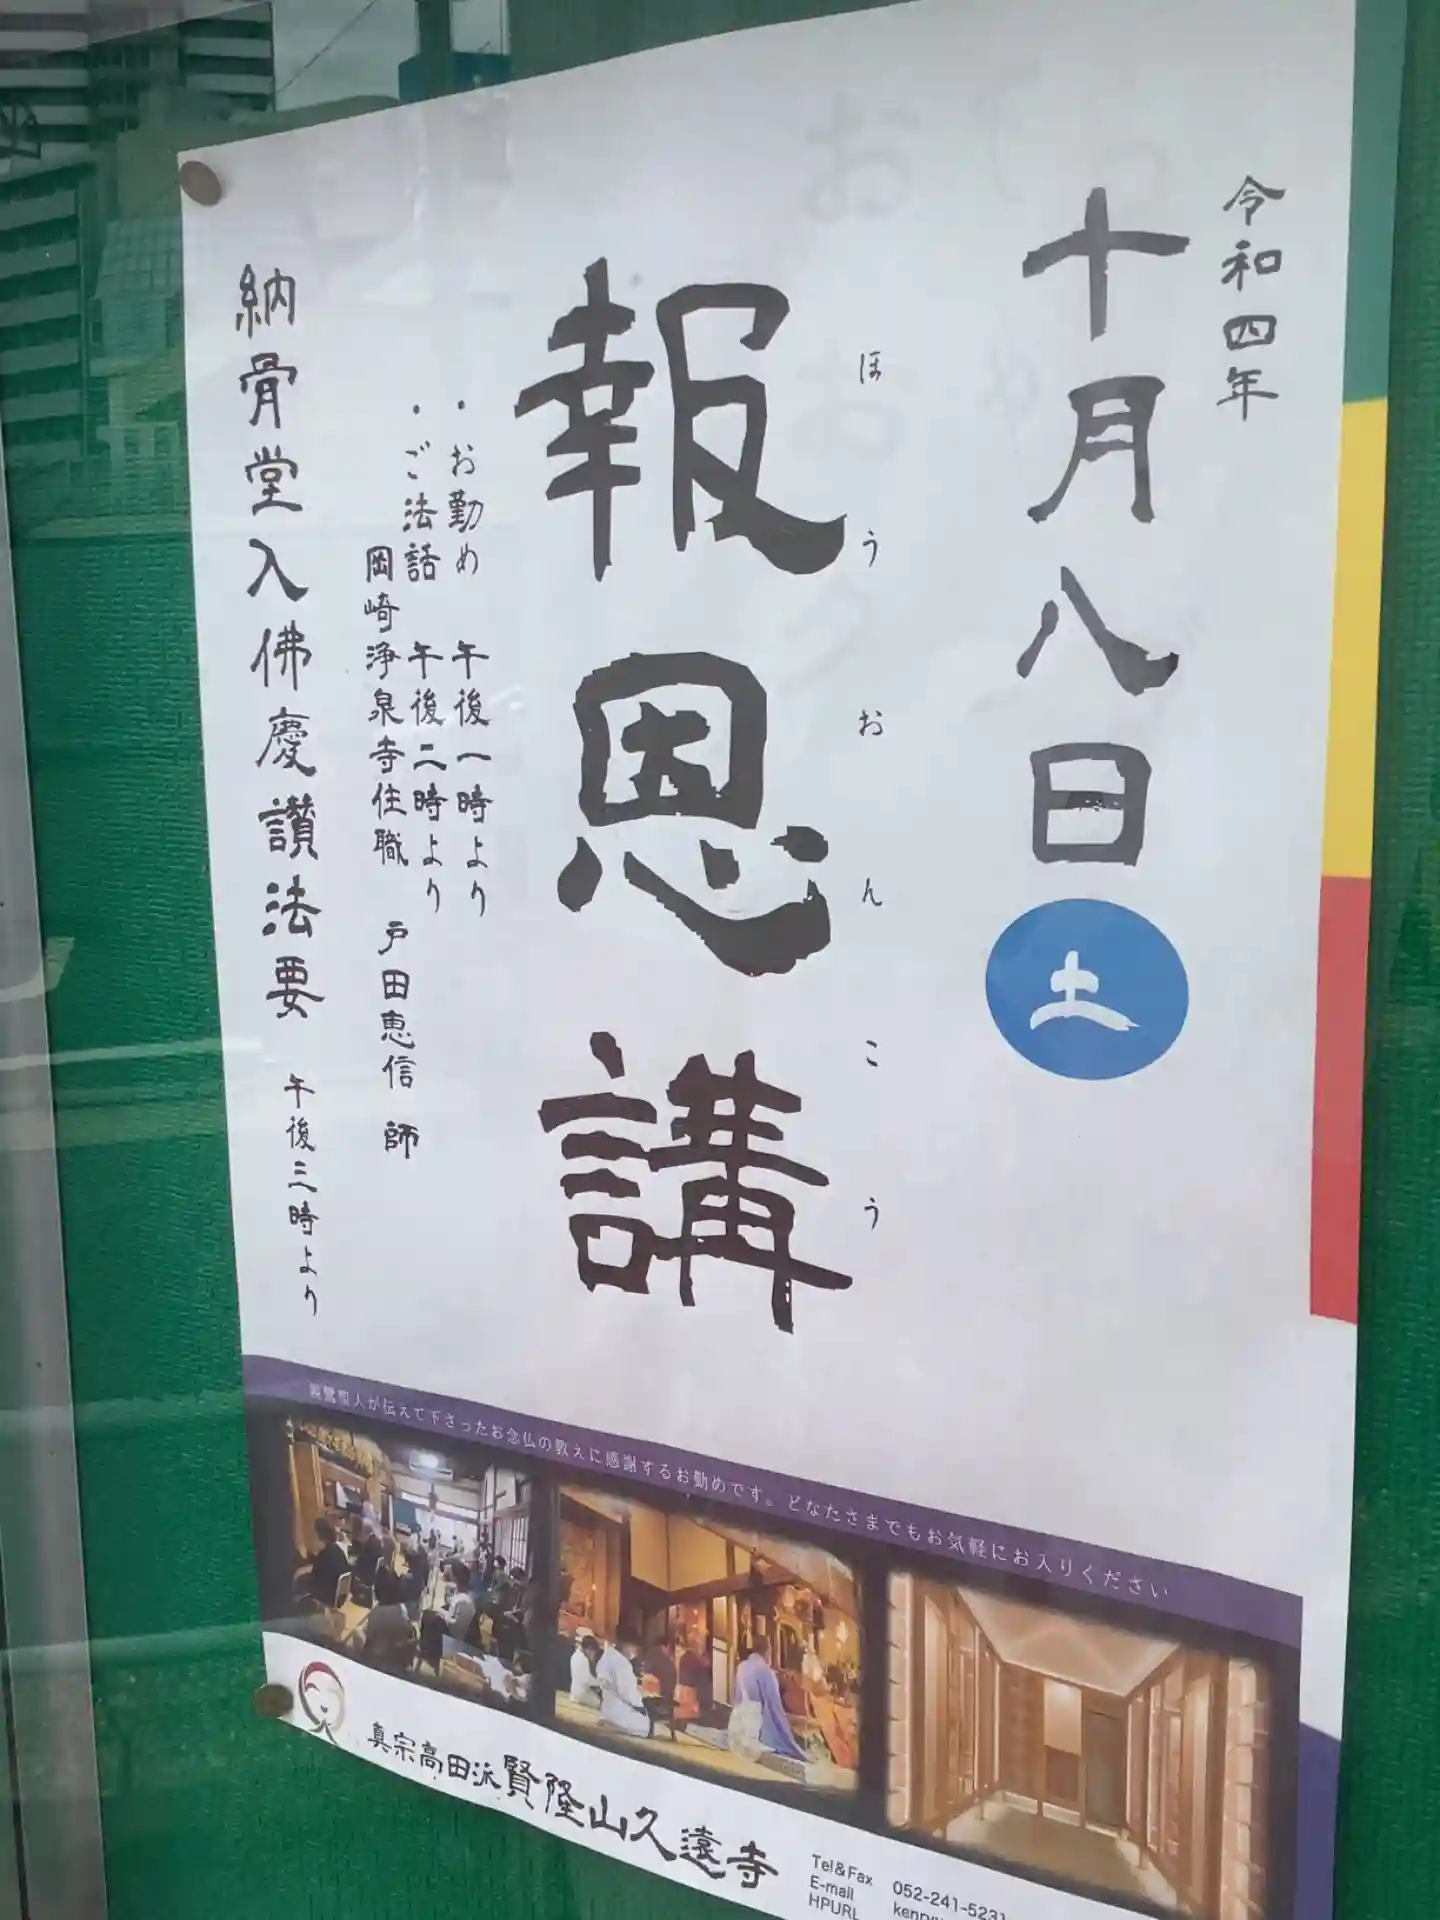 令和四年
十月八日
土
ほうおんこう
報恩講
・お勤め 午後一時より
・ご法話 午後二時より
岡崎浄泉寺住職 戸田恵信 師
納骨堂入佛慶讃法要 午後三時より
親鸞聖人が伝えて下さったお念仏の教えに感謝するお勤めです。どなたさまでもお気軽にお入りください
真宗高田派賢隆山久遠寺
Tel&Fax 052-241-5231
E-mail
HPURL